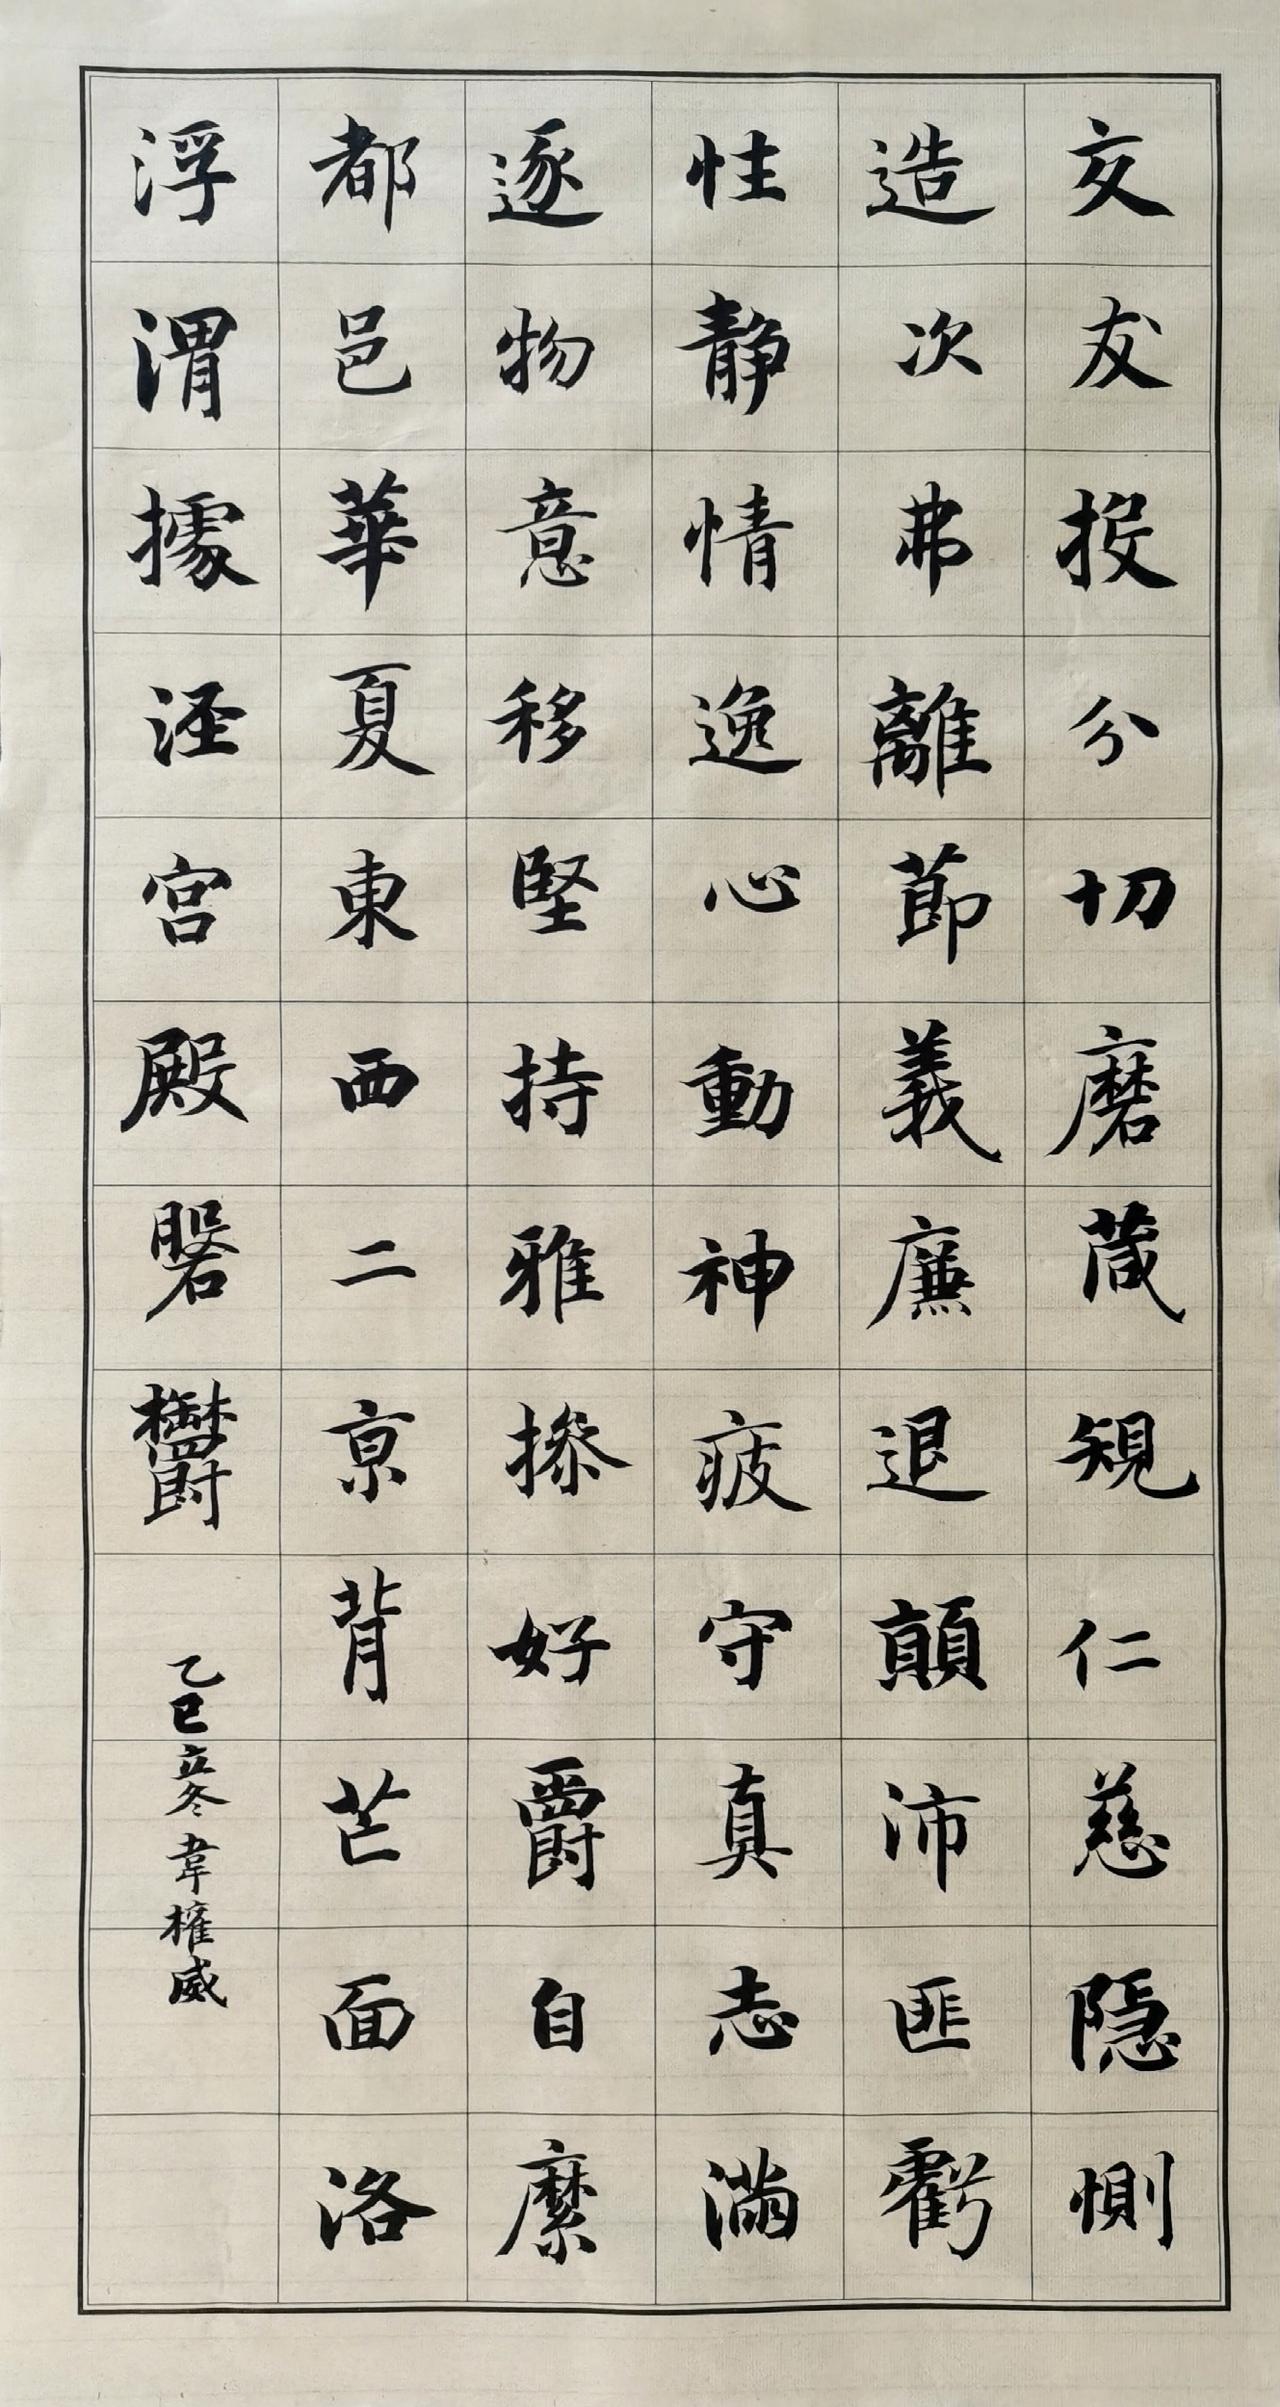 交友投分切磨箴規仁慈隱惻
造次弗離節義廉退顛沛匪虧
性靜情逸心動神疲守真志滿
逐物意移堅持雅操好爵自縻
都邑華夏東西二京背芒面洛
浮渭據涇宮殿磐鬱
乙巳立冬韋權威